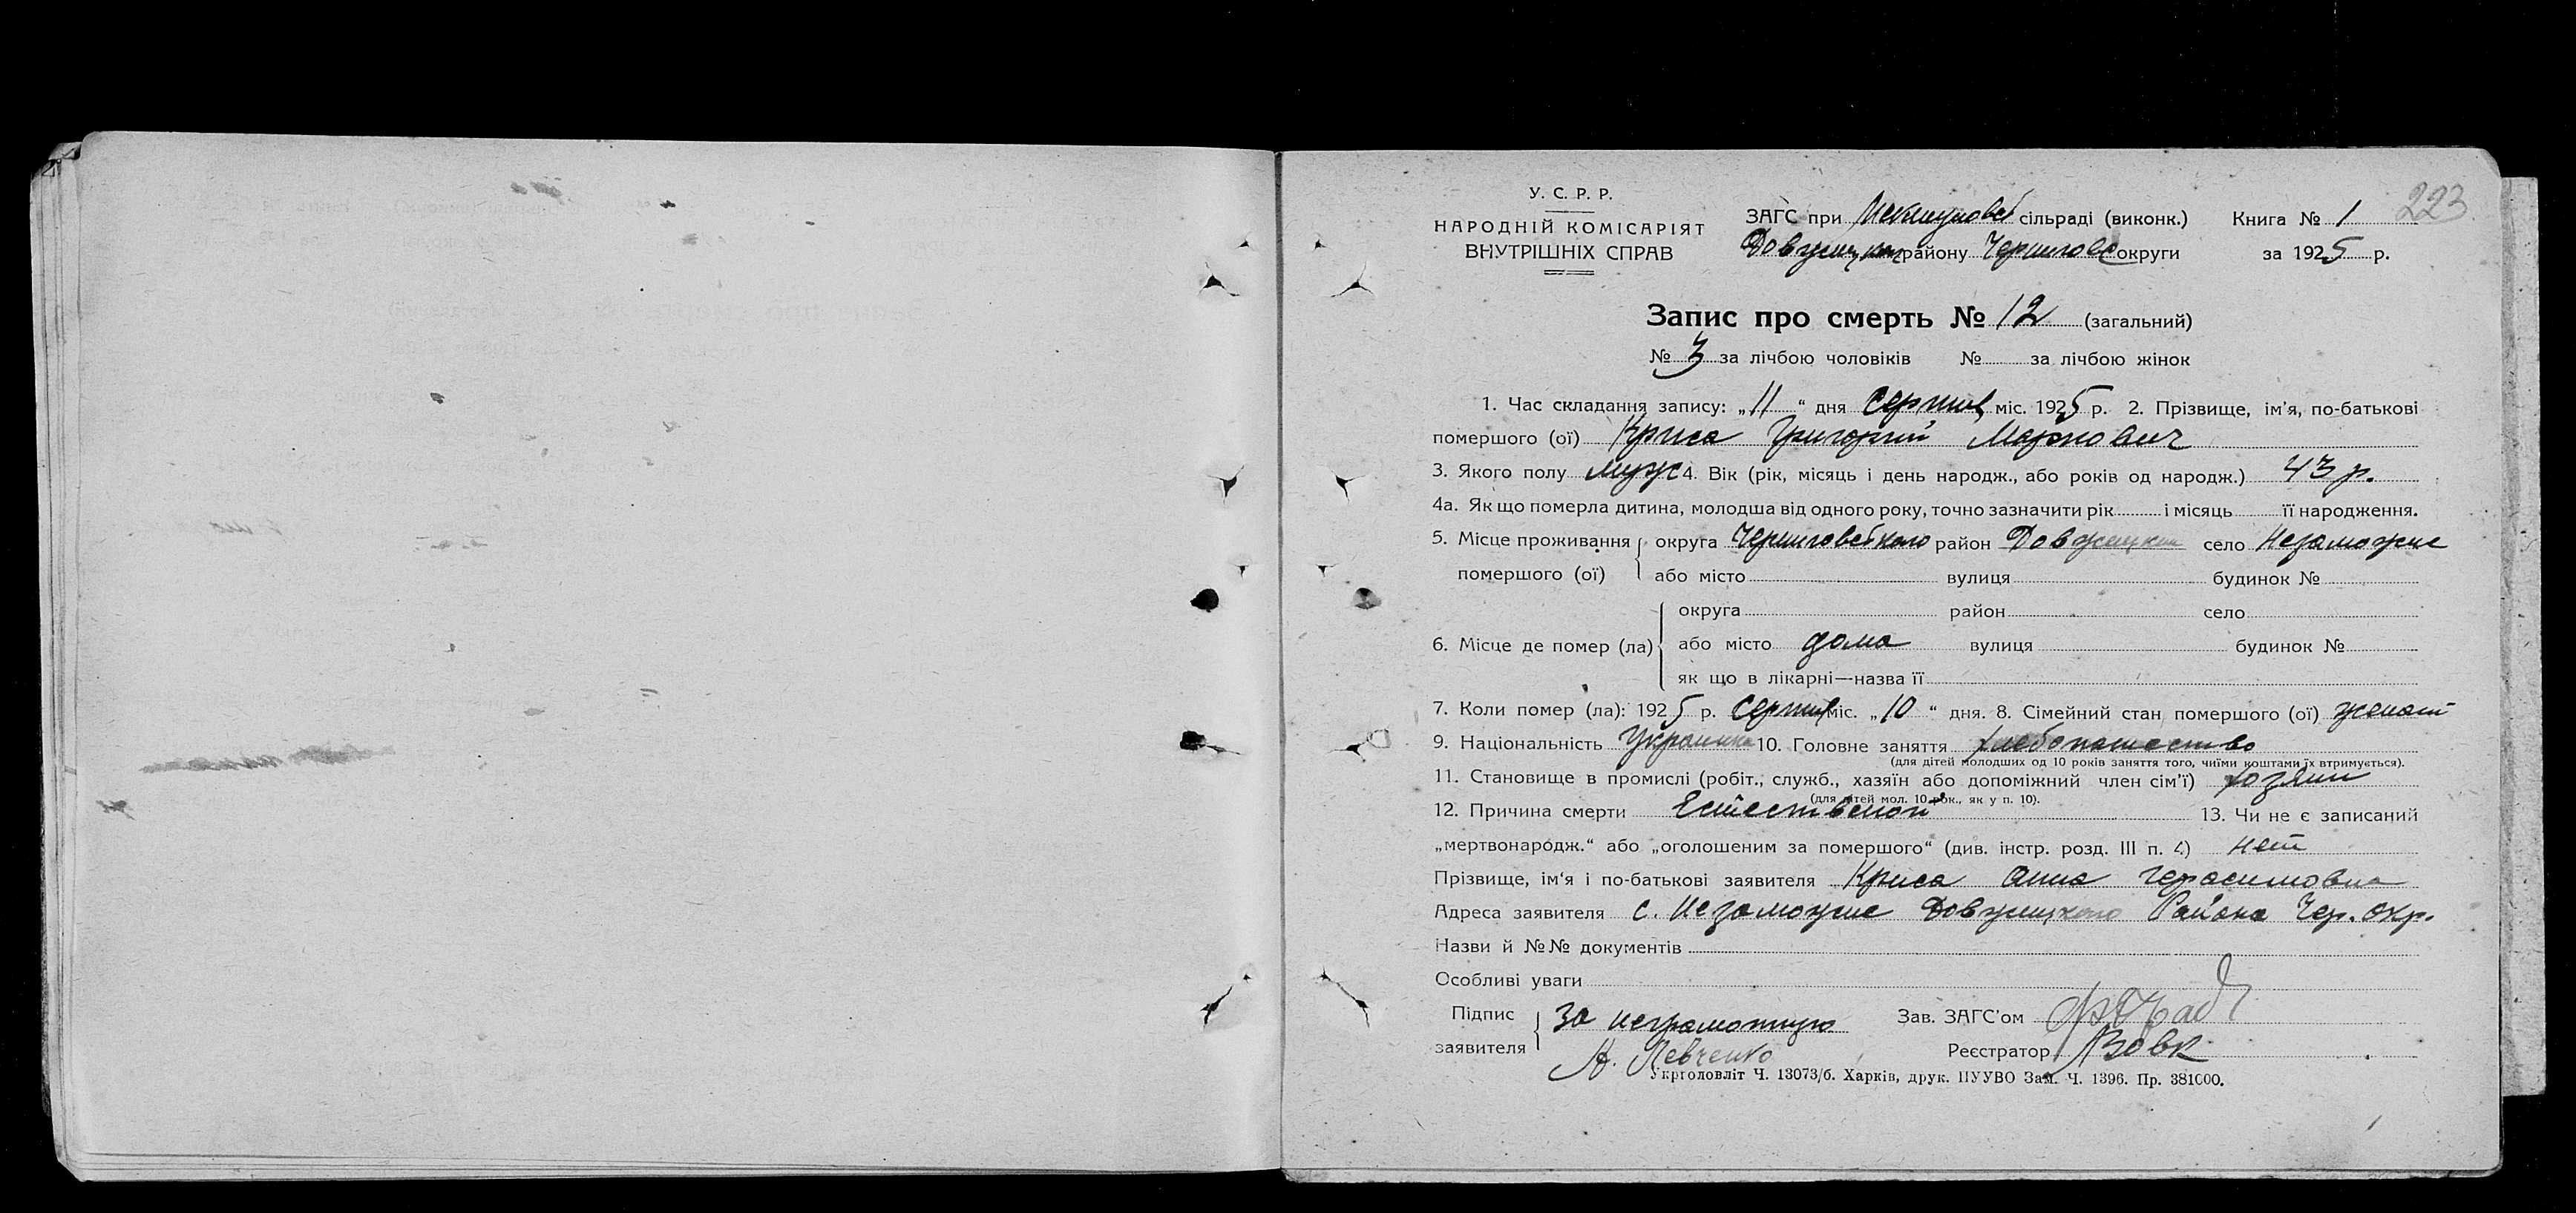 223
У. С. Р. Р.
НАРОДНІЙ КОМІСАРІЯТ
ВНУТРІШНІХ СПРАВ
ЗАГС при сільраді (виконк.) Книга № 1
району округи за 1925 р.
Запис про смерть № 12 (загальний)
№ 3 за лічбою чоловіків № за лічбою жінок
1. Час складання запису: „11“ дня міс. 1925 р. 2. Прізвище, ім'я, по-батькові
помершого (ої) Криса Григорий Маркович
3. Якого полу муж 4. Вік (рік, місяць і день народж., або років од народж.) 43 р.
4а. Як що померла дитина, молодша від одного року, точно зазначити рік і місяць її народження.
5. Місце проживання округа район село Незаможне
помершого (ої) або місто вулиця будинок №
округа район село
6. Місце де помер (ла) або місто дома вулиця будинок №
як що в лікарні—назва її
7. Коли помер (ла): 1925 р. міс. „10“ дня. 8. Сімейний стан помершого (ої) женат
9. Національність 10. Головне заняття хлебопашество
(для дітей молодших од 10 років заняття того, чиїми коштами їх втримується).
11. Становище в промислі (робіт., служб., хазяїн або допоміжний член сім'ї) хозяин
(для дітей мол. 10 рок., як у п. 10).
12. Причина смерти 13. Чи не є записаний
„мертвонародж.“ або „оголошеним за помершого“ (див. інстр. розд. III п. 4) нет
Прізвище, ім'я і по-батькові заявителя Криса Анна Герасимовна
Адреса заявителя с. Незаможне Района Чер. окр.
Назви й №№ документів
Особливі уваги
Підпис за неграмотную Зав. ЗАГС'ом
заявителя А. Левченко Реєстратор Вовк
Укрголовліт Ч. 13073/б. Харків, друк. ПУУВО Зам. Ч. 1396. Пр. 381000.